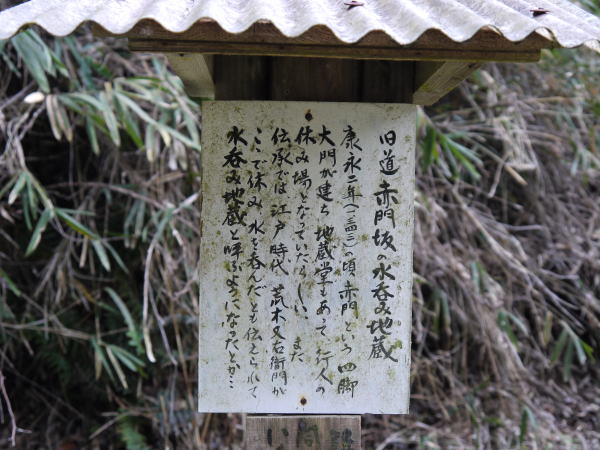 旧道 赤門坂の水呑み地蔵
康永二年(一三四三)の頃 赤門という 四脚
大門が建ち 地蔵堂もあって 行人の
休み場となっていたらしい、また
伝承では 江戸時代 荒木又右衛門が
ここで休み、水を呑んだとも伝えられて
水呑み地蔵と呼ぶようになったとか…